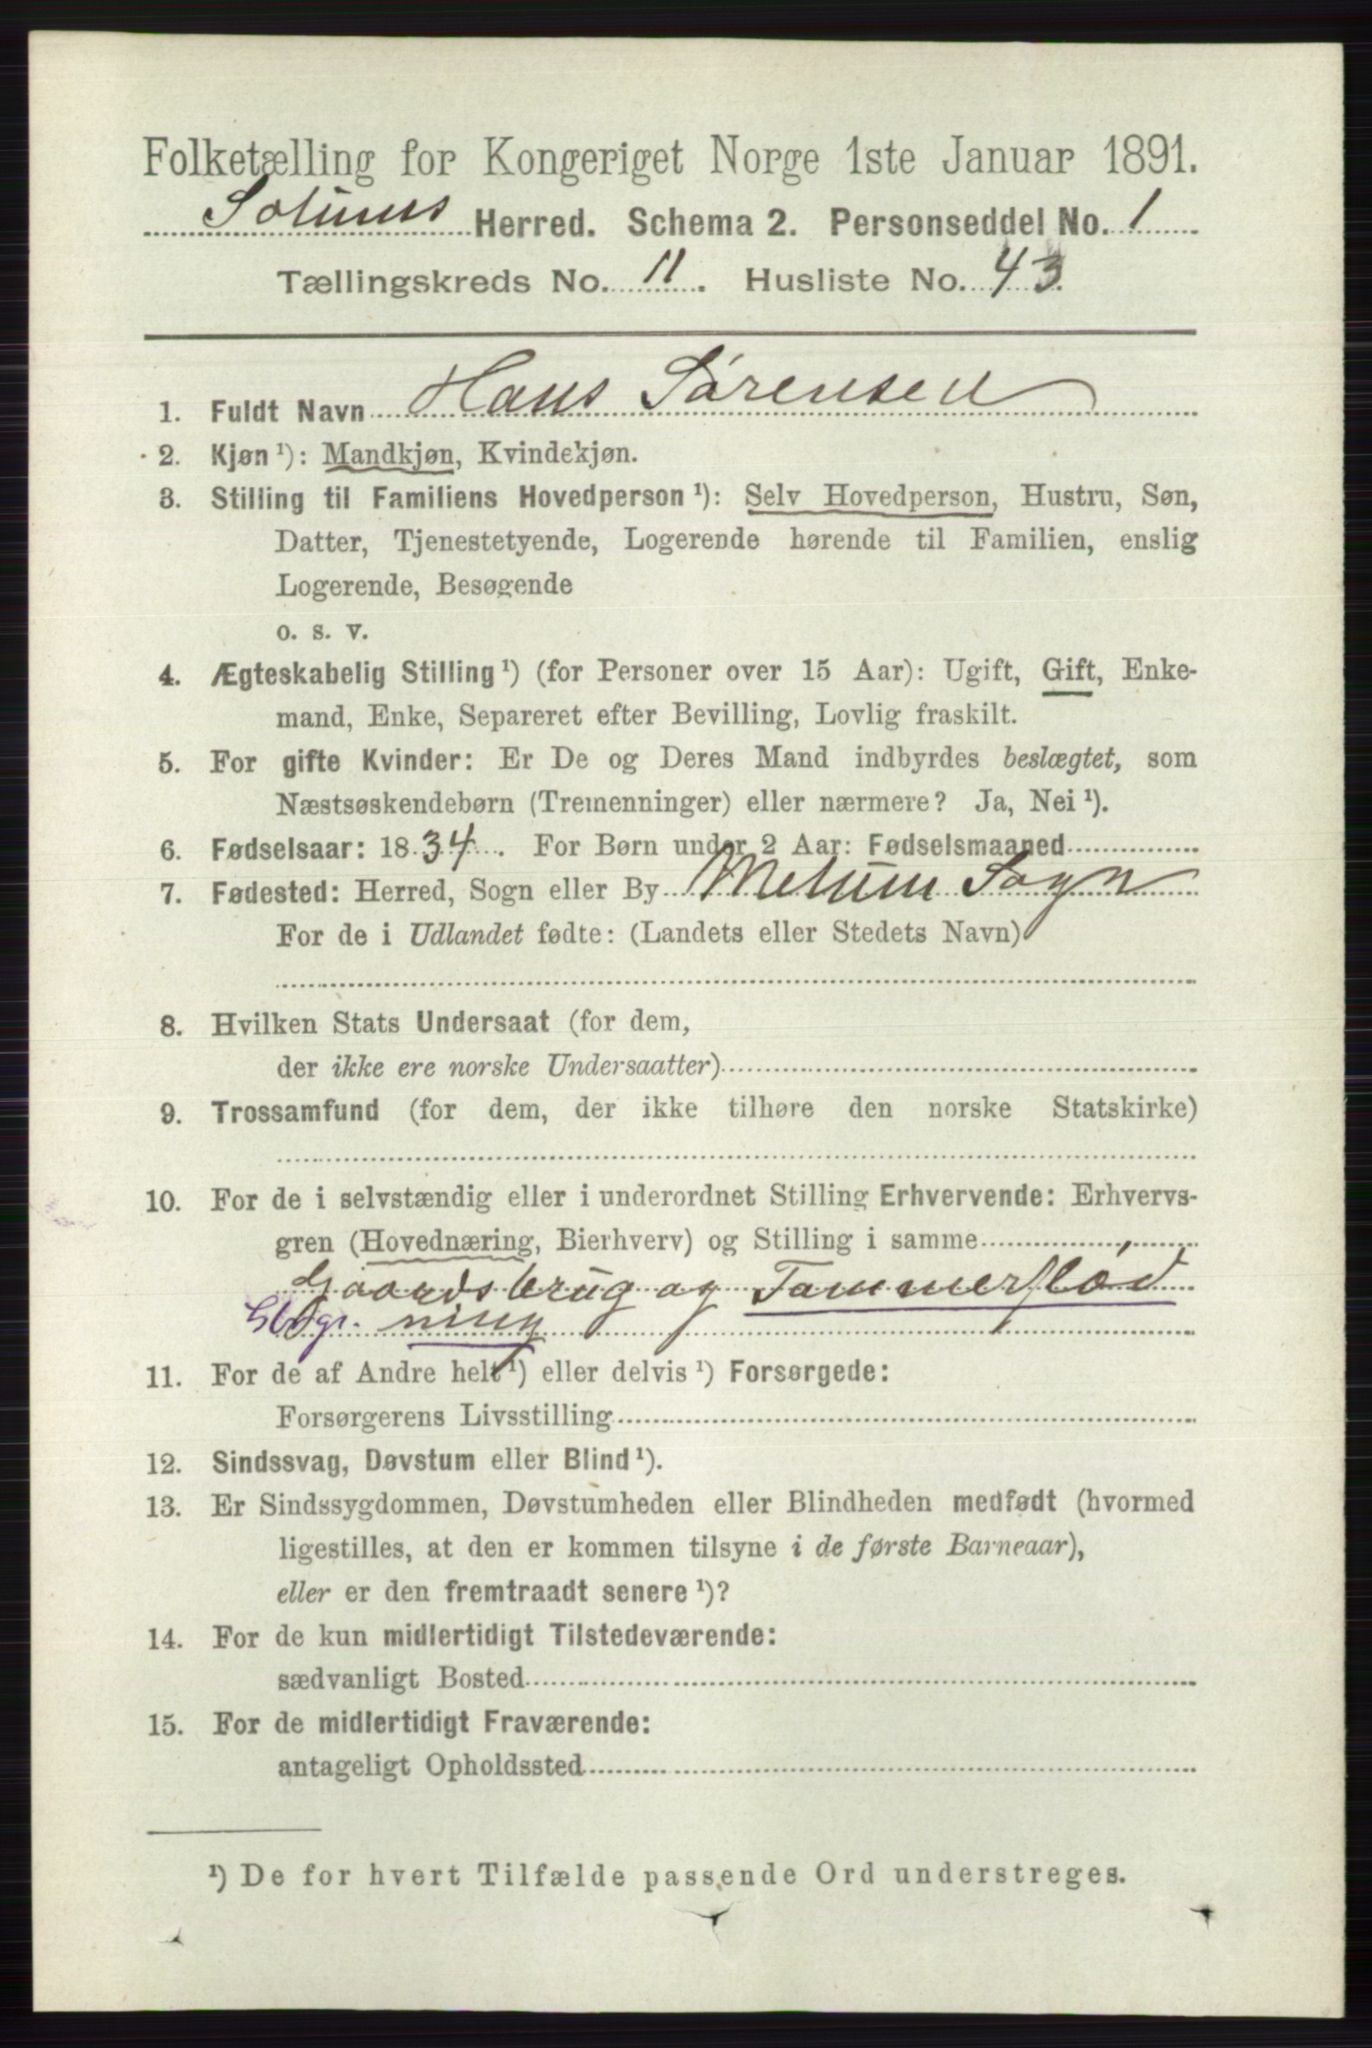 Folketælling for Kongeriget Norge 1ste Januar 1891.
Solums Herred. Schema 2. Personseddel No. 1
Tællingskreds No. 11. Husliste No. 43
1. Fuldt Navn Hans Sørensen
2. Kjøn ¹): Mandkjøn, Kvindekjøn.
3. Stilling til Familiens Hovedperson ¹): Selv Hovedperson, Hustru, Søn,
Datter, Tjenestetyende, Logerende hørende til Familien, enslig
Logerende, Besøgende
o. s. v.
4. Ægteskabelig Stilling ¹) (for Personer over 15 Aar): Ugift, Gift, Enke-
mand, Enke, Separeret efter Bevilling, Lovlig fraskilt.
5. For gifte Kvinder: Er De og Deres Mand indbyrdes beslægtet, som
Næstsøskendebørn (Tremenninger) eller nærmere? Ja, Nei ¹).
6. Fødselsaar: 1834. For Børn under 2 Aar: Fødselsmaaned
7. Fødested: Herred, Sogn eller By Melum Sogn
For de i Udlandet fødte: (Landets eller Stedets Navn)
8. Hvilken Stats Undersaat (for dem,
der ikke ere norske Undersaatter)
9. Trossamfund (for dem, der ikke tilhøre den norske Statskirke)
10. For de i selvstændig eller i underordnet Stilling Erhvervende: Erhvervs-
gren (Hovednæring, Bierhverv) og Stilling i samme
Gaardsbrug og Tømmerflød
ning
11. For de af Andre helt ¹) eller delvis ¹) Forsørgede:
Forsørgerens Livsstilling
12. Sindssvag, Døvstum eller Blind ¹).
13. Er Sindssygdommen, Døvstumheden eller Blindheden medfødt (hvormed
ligestilles, at den er kommen tilsyne i de første Barneaar),
eller er den fremtraadt senere ¹)?
14. For de kun midlertidigt Tilstedeværende:
sædvanligt Bosted
15. For de midlertidigt Fraværende:
antageligt Opholdssted
¹) De for hvert Tilfælde passende Ord understreges.